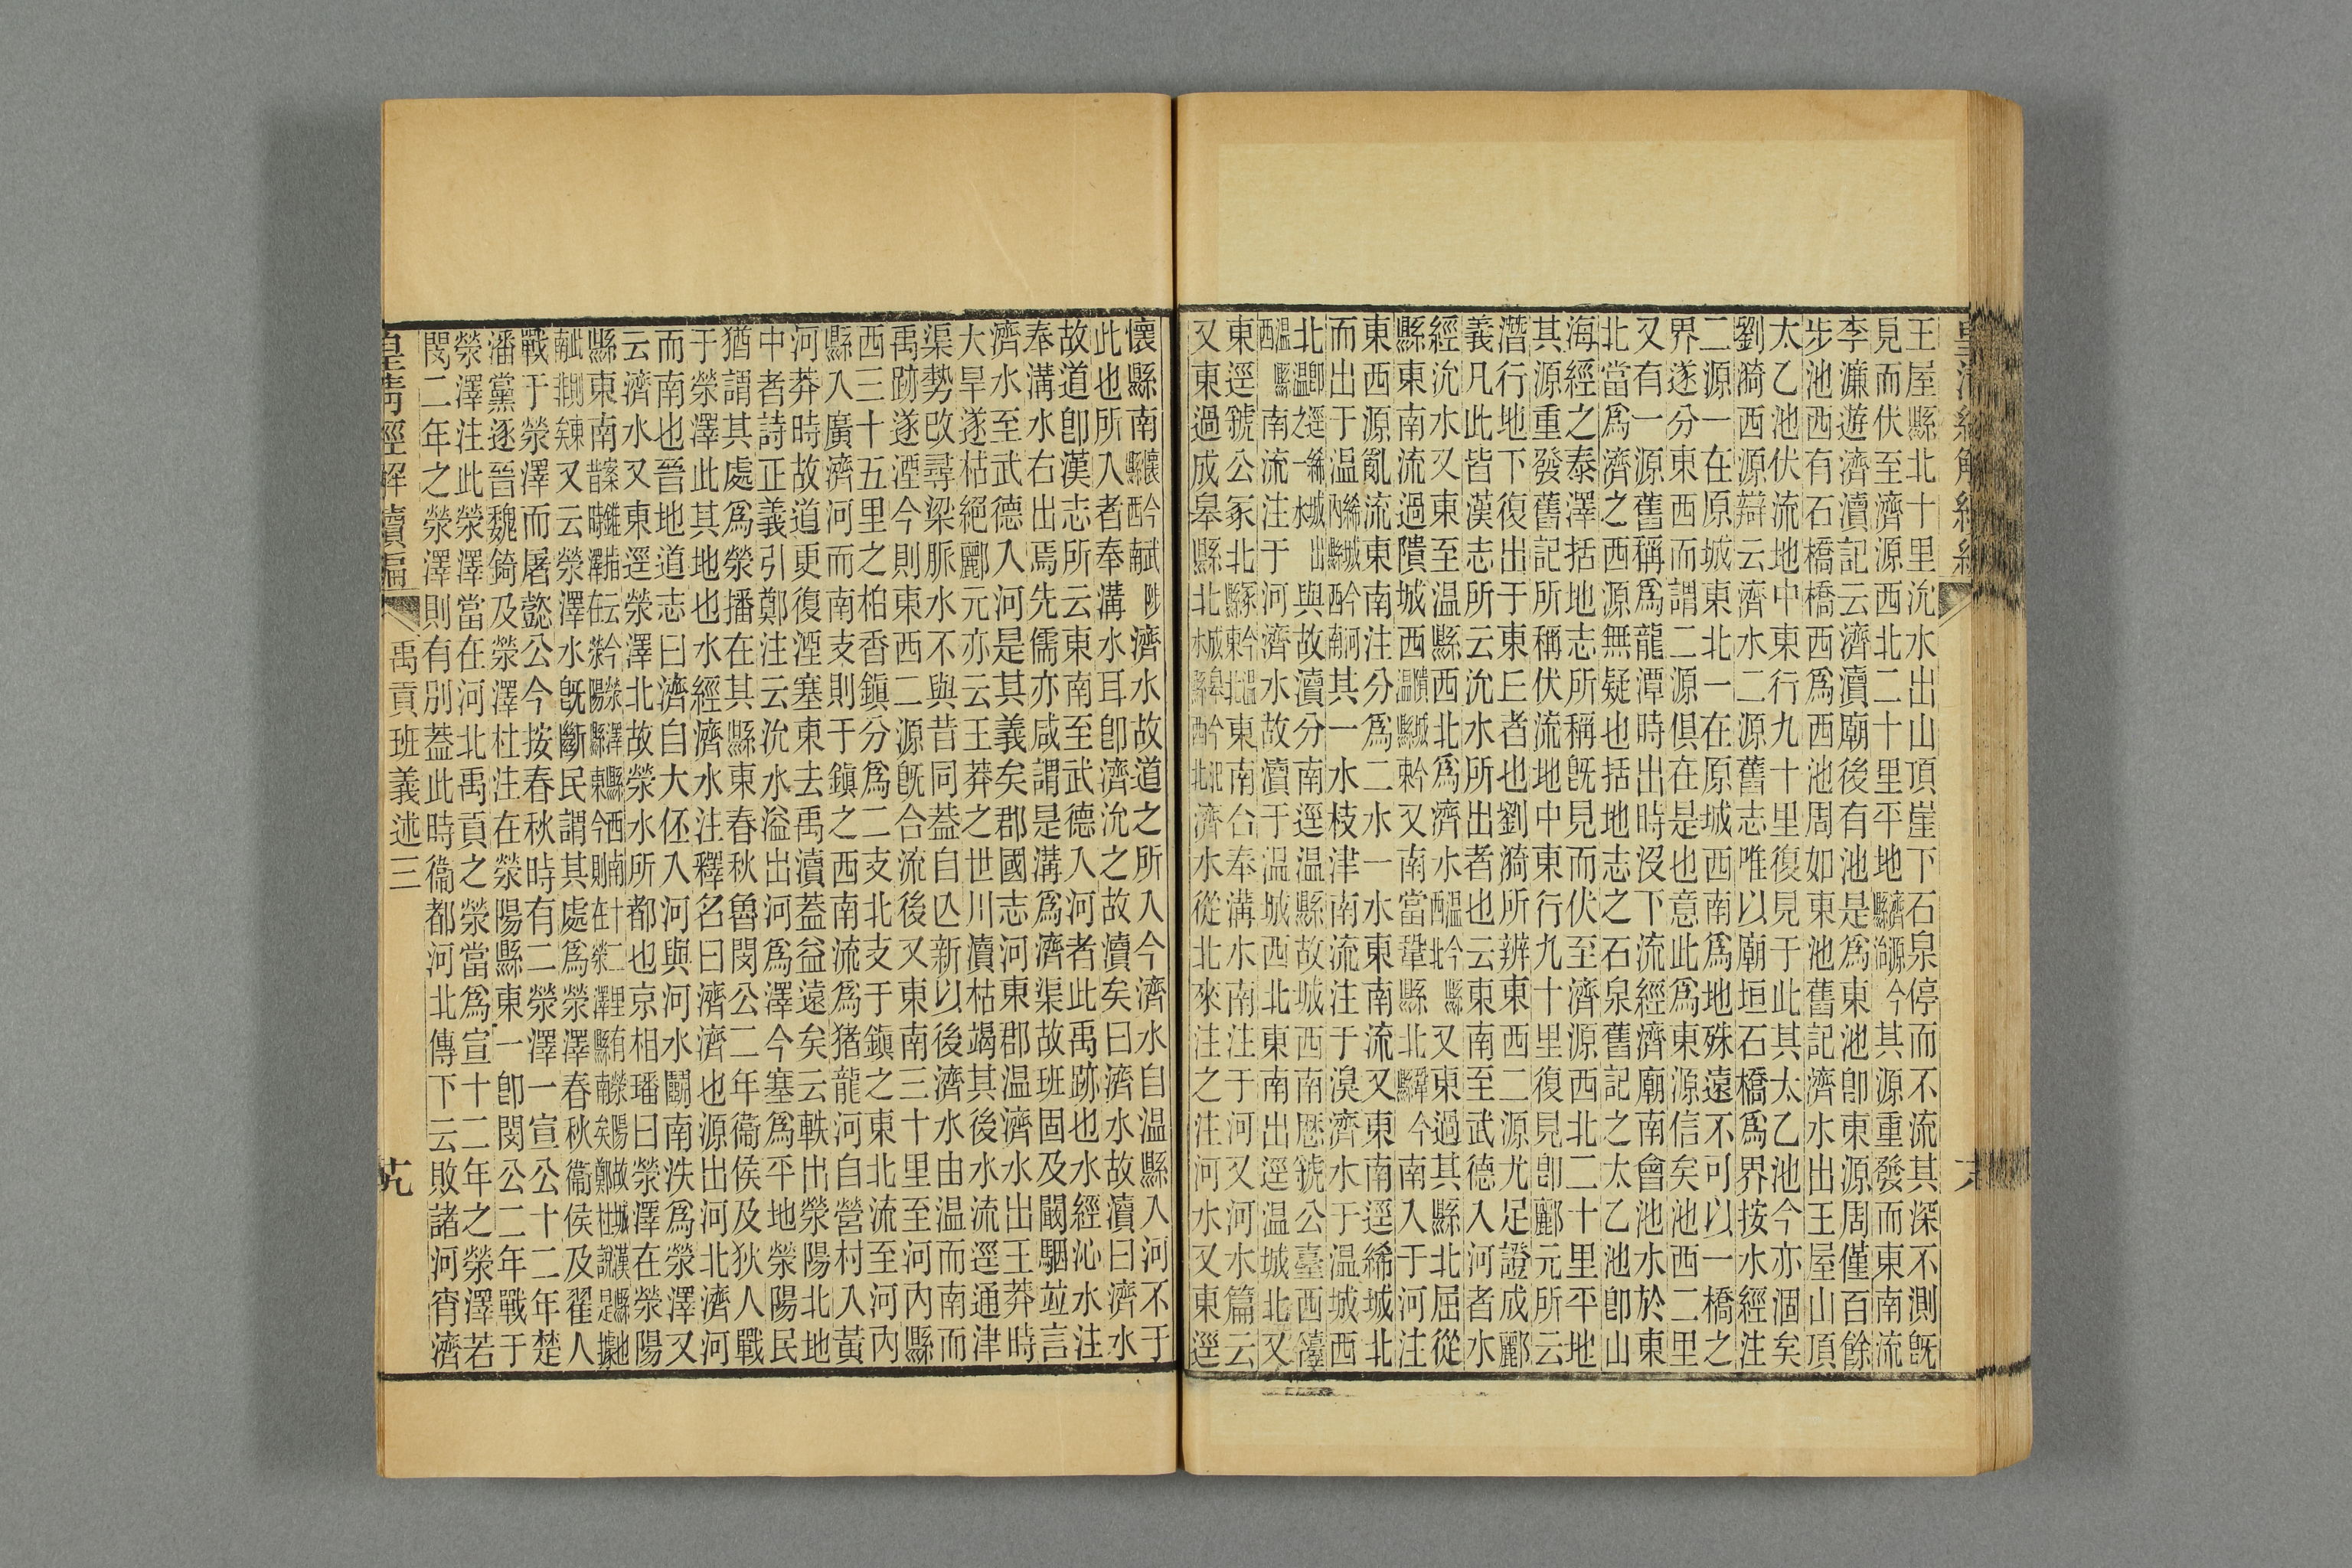 王屋縣北十里沇水出山頂崖下石泉停而不流其深不測既
見而伏至濟源西北二十里平地濟源今縣治其源重發而東南流
李濂遊濟瀆記云濟瀆廟後有池是爲東池卽東源周僅百餘
步池西有石橋橋西爲西池周如東池舊記濟水出王屋山頂
太乙池伏流地中東行九十里復見于此其太乙池今亦涸矣
劉漪西源辯云濟水二源舊志唯以廟垣石橋爲界按水經注
二源一在原城東北一在原城西南爲地殊遠不可以一橋之
界遂分東西而謂二源俱在是也意此爲東源信矣池西二里
又有一源舊稱爲龍潭時出時沒下流經濟廟南會池水於東
北當爲濟之西源無疑也括地志之石泉舊記之太乙池卽山
海經之泰澤括地志所稱既見而伏至濟源西北二十里平地
其源重發舊記所稱伏流地中東行九十里復見卽酈元所云
潛行地下復出于東丘者也劉漪所辨東西二源尤足證成酈
義凡此皆漢志所云沇水所出者也云東南至武德入河者水
經沇水又東至温縣西北爲濟水温西北今縣又東過其縣北屈從
縣東南流過隤城西隤城今温縣東又南當鞏縣北鞏縣今南入于河注
東西源亂流東南注分爲二水一水東南流又東南逕絺城北
而出于温絺城今河內縣西南其一水枝津南流注于湨濟水于温城西
北與故瀆分南逕温縣故城西南歷虢公臺西
南流注于河濟水故瀆于温城西北東南出逕温城北又
東逕虢公冢北冢今温縣東北東南合奉溝水南注于河又河水篇云
又東過成皋縣北成皋今汜水縣西北濟水從北來注之注河水又東逕
懷縣南懷今武陟縣西濟水故道之所入今濟水自温縣入河不于
此也所入者奉溝水耳卽濟沇之故瀆矣曰濟水故瀆曰濟水
故道卽漢志所云東南至武德入河者此禹跡也水經沁水注
奉溝水右出焉先儒亦咸謂是溝爲濟渠故班固及闞駰竝言
濟水至武德入河是其義矣郡國志河東郡温濟水出王莽時
大旱遂枯絕酈元亦云王莽之世川瀆枯竭其後水流逕通津
渠勢改尋梁脈水不與昔同葢自亾新以後濟水由温而南而
禹跡遂湮今則東西二源既合流後又東南三十里至河內縣
西三十五里之柏香鎭分爲二支北支于鎭之東北流至河內
縣入廣濟河而南支則于鎭之西南流爲豬龍河自營村入黃
河莽時故道更復湮塞東去禹瀆葢益遠矣云軼出滎陽北地
中者詩正義引鄭注云沇水溢出河爲澤今塞爲平地滎陽民
猶謂其處爲滎播在其縣東春秋魯閔公二年衞侯及狄人戰
于滎澤此其地也水經濟水注釋名曰濟濟也源出河北濟河
而南也晉地道志曰濟自大伾入河與河水鬭南泆爲滎澤又
云濟水又東逕滎澤北故滎水所都也京相璠曰滎澤在滎陽
縣東南
又云滎澤水既斷民謂其處爲滎澤春秋衞侯及翟人
戰于滎澤而屠懿公今按春秋時有二滎澤一宣公十二年楚
潘黨逐晉魏錡及滎澤杜注在滎陽縣東一卽閔公二年戰于
滎澤注此滎澤當在河北禹貢之滎當爲宣十二年之滎澤若
閔二年之滎澤則有別葢此時衞都河北傳下云敗諸河宵濟
皇清經解續編
禹貢班義述三